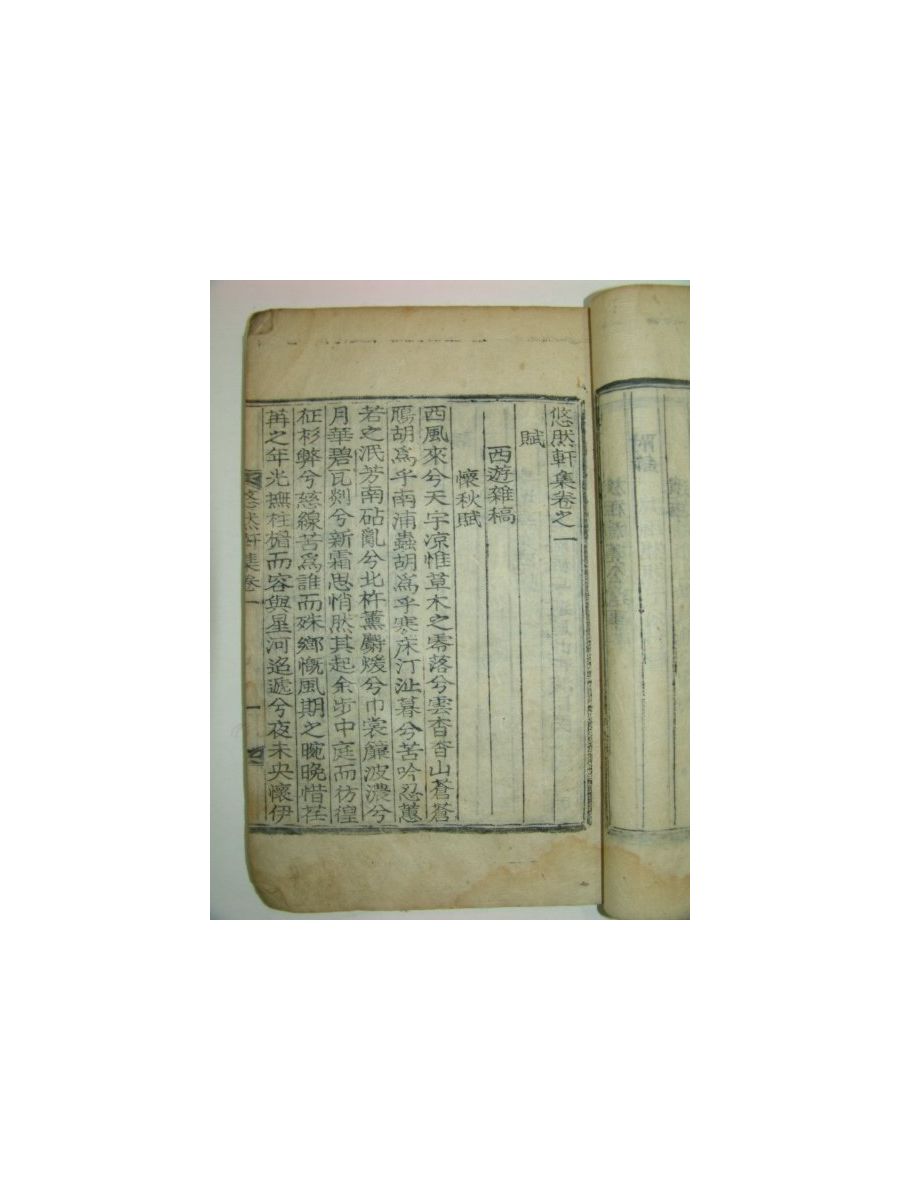 悠然軒集卷之一
賦
西遊雜稿
懷秋賦
西風來兮天宇凉惟草木之零落兮雲杳杳山蒼蒼
鴈胡爲乎南浦蟲胡爲乎寒床汀沚暮兮苦吟忍蕙
若之泯芳南砧亂兮北杵薰麝煖兮巾裳簾波濃兮
月華碧瓦剡兮新霜思悄然其起余步中庭而彷徨
征杉弊兮慈線苦爲誰而殊鄕慨風期之晼晩惜荏
苒之年光撫柱檐而容與星河迢遞兮夜未央懷伊
悠然軒集卷一
一